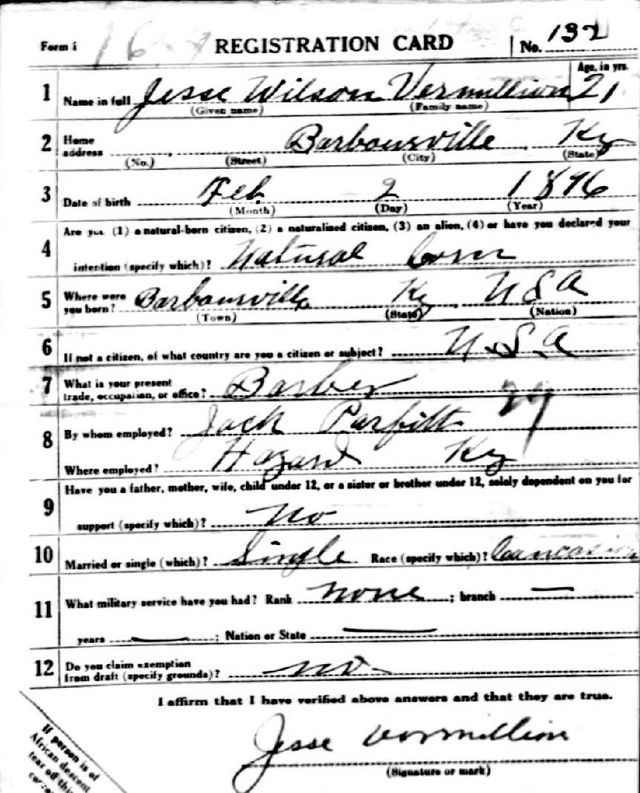 Form 1 REGISTRATION CARD No. 132
Age, in yrs.
1 Name in full Jesse Wilson Vermillion 21
(Given name) (Family name)
2 Home address Barboursville Ky
(No.) (Street) (City) (State)
3 Date of birth Feb. 2 1896
(Month) (Day) (Year)
Are you (1) a natural-born citizen, (2) a naturalized citizen, (3) an alien, (4) or have you declared your
4 intention (specify which)? Natural born
5 Where were you born? Barboursville Ky. USA
(Town) (State) (Nation)
6 If not a citizen, of what country are you a citizen or subject? U.S.A
7 What is your present trade, occupation, or office? Barber 29
8 By whom employed? Jack Parfitt
Where employed? Hazard Ky
9 Have you a father, mother, wife, child under 12, or a sister or brother under 12, solely dependent on you for
support (specify which)? no
10 Married or single (which)? Single Race (specify which)? Caucasian
11 What military service have you had? Rank none ; branch —
years — ; Nation or State —
12 Do you claim exemption from draft (specify grounds)? no
I affirm that I have verified above answers and that they are true.
Jesse Vermillion
(Signature or mark)
If person is of
African descent
tear off this